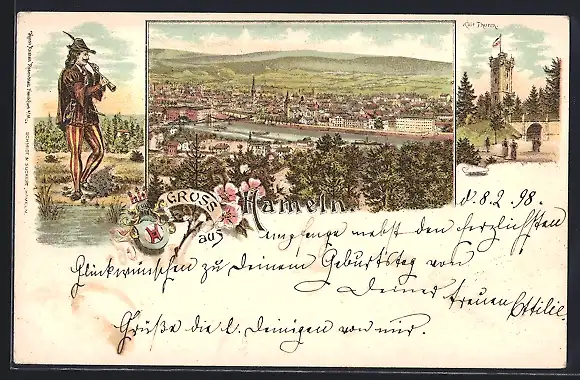 Klüt Thurm
Gruss
aus
Hameln
d. 8.2.98.
empfange nebst den herzlichsten
Glückwünschen zu Deinem Geburtstag von
Deiner treuen Ottilie.
Grüße die l. Deinigen von mir.